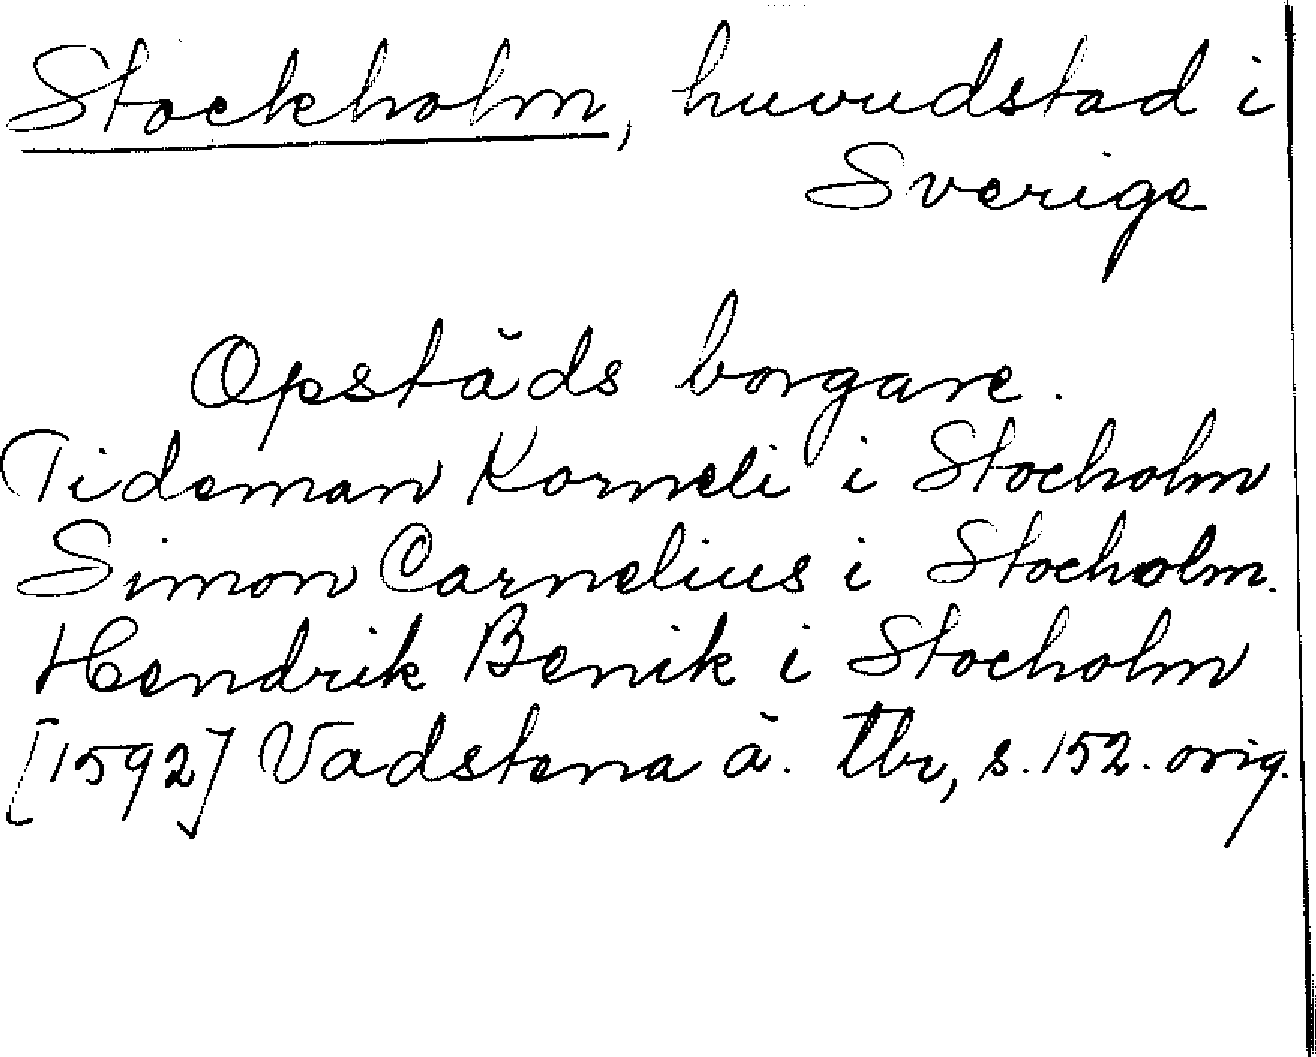 Stockholm, huvudstad i
Sverige
Opstäds borgare.
Tideman Korneli i Stocholm
Simon Carnelius i Stocholm.
Hendrik Benik i Stocholm
[1592] Vadstena ä. tbr, s. 152. orig.